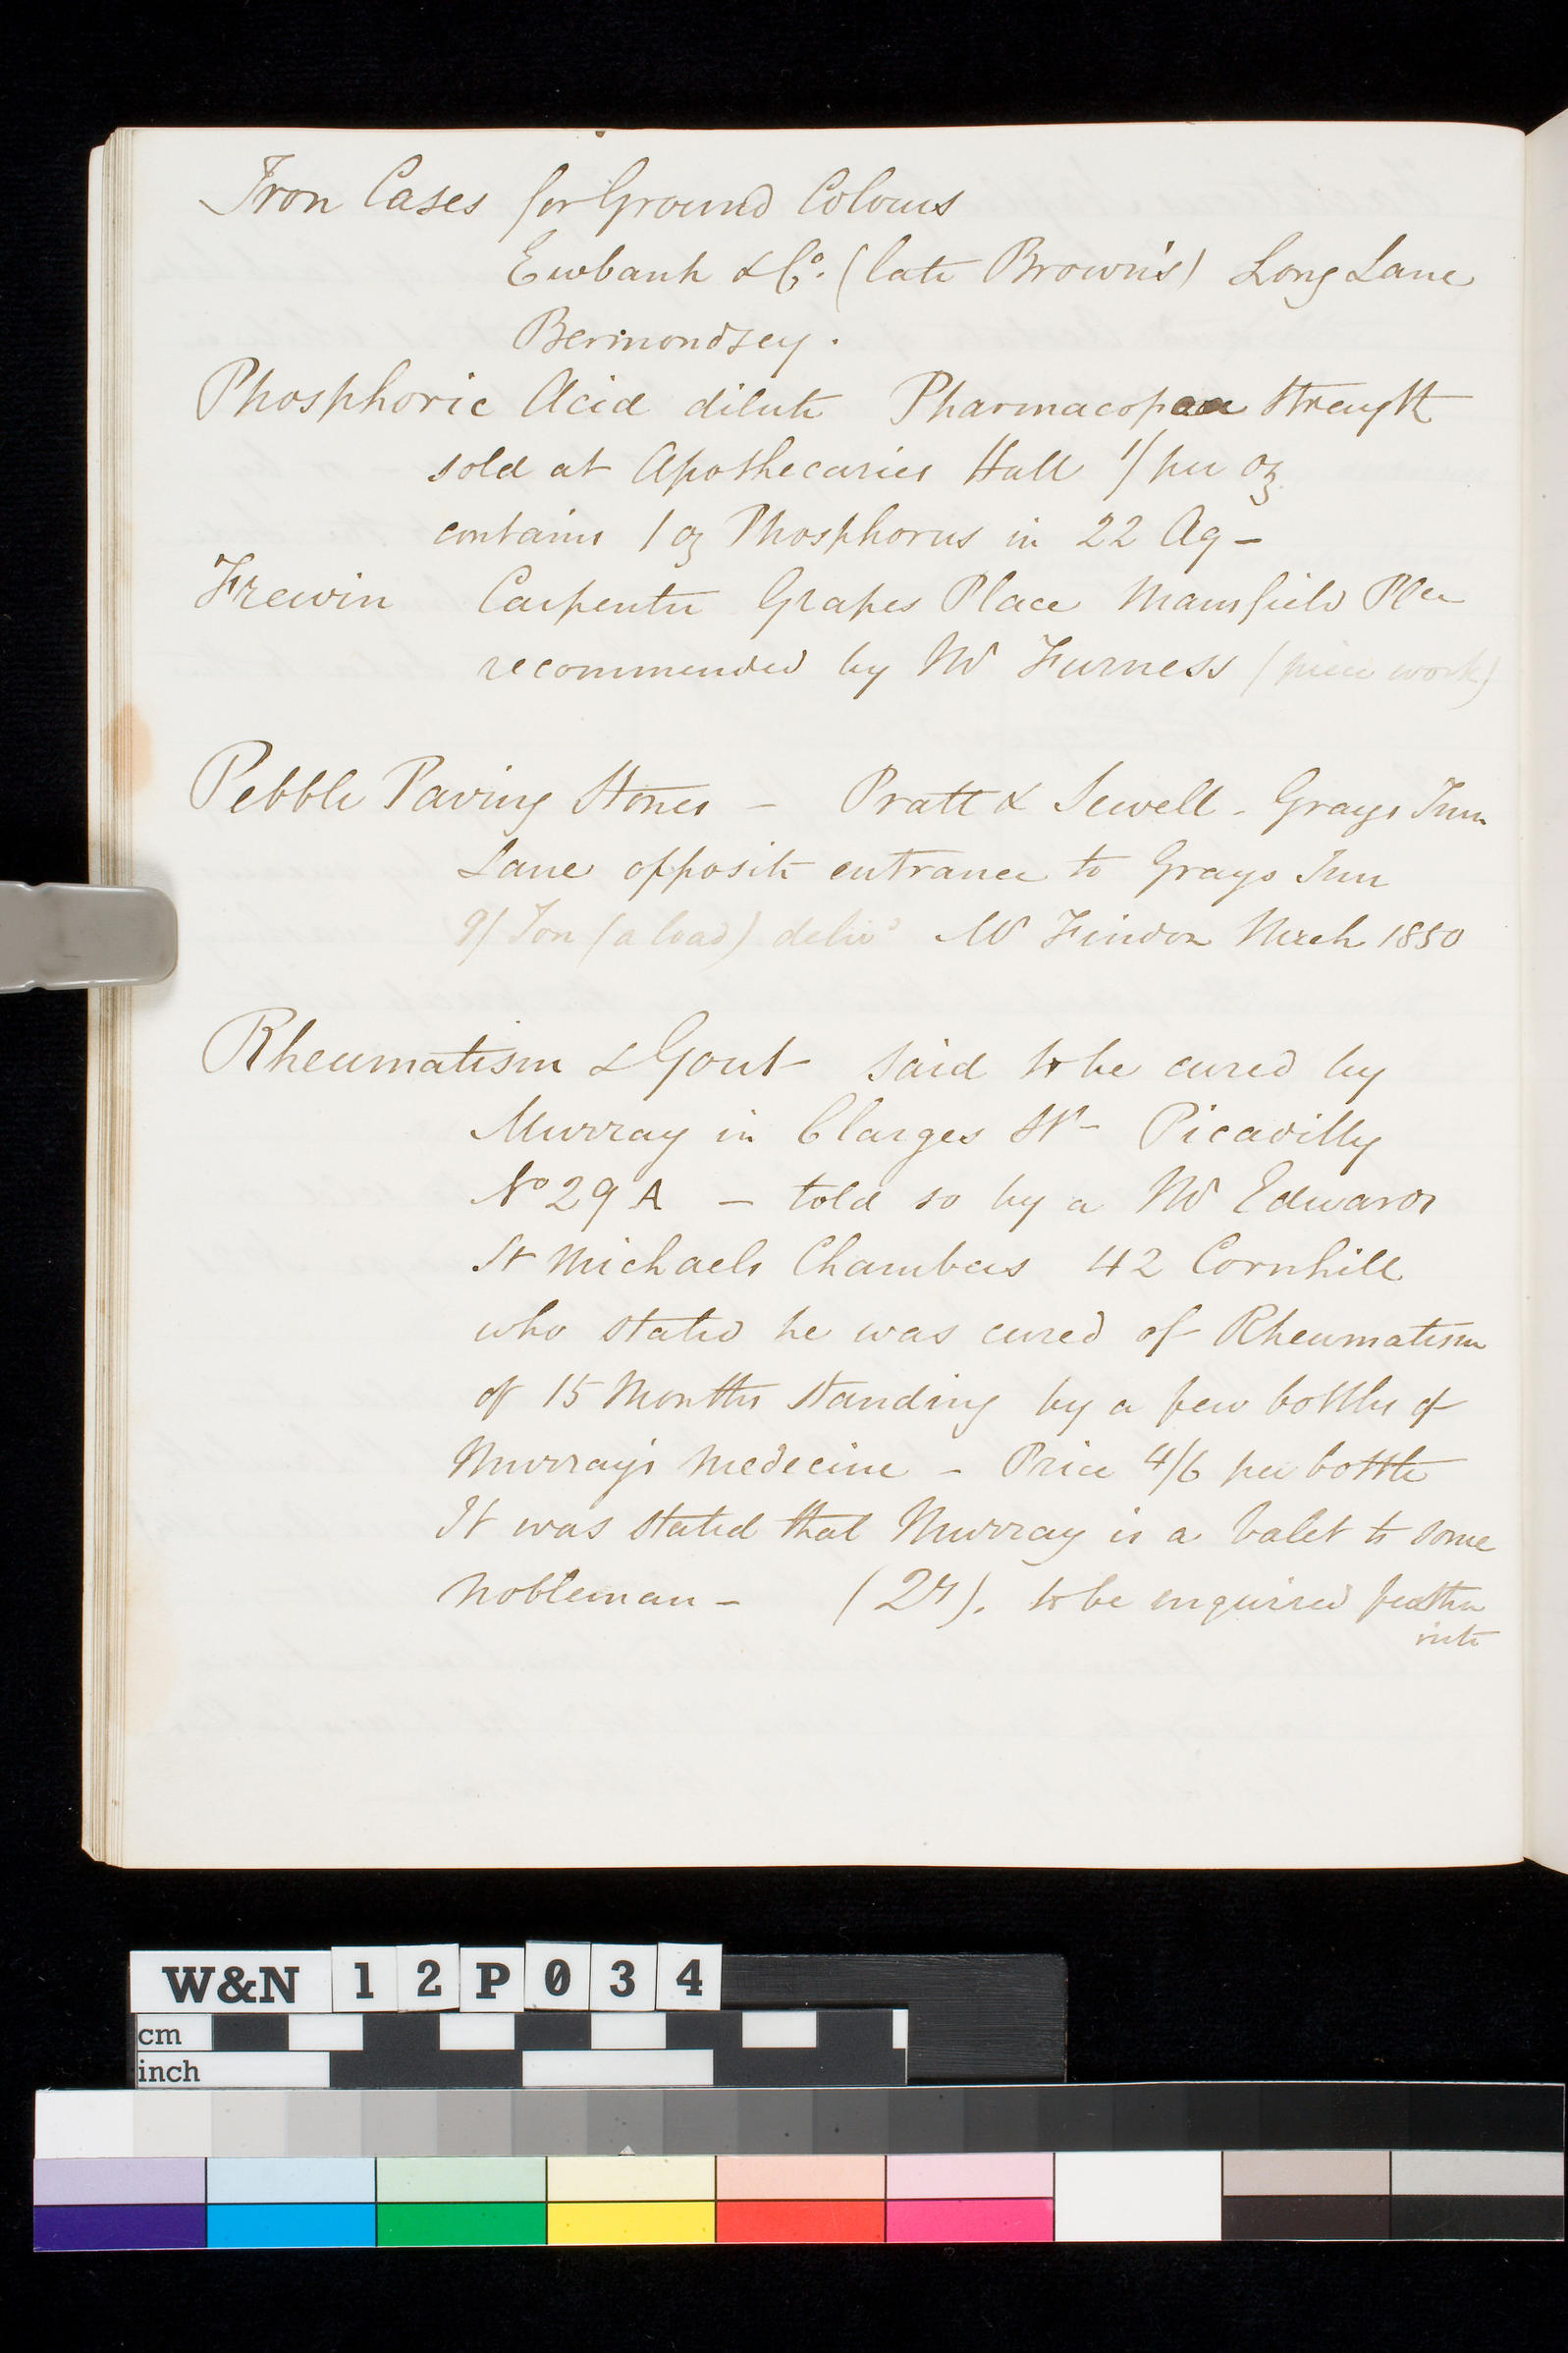 Iron Cases for Ground Colours
Ewbank & Co. (late Brown's) Long Lane
Bermondsey.
Phosphoric Acid dilute Pharmacopaea Strength
sold at Apothecaries Hall 1/ per oz
contains 1 oz Phosphorus in 22 Aq -
Frewin Carpenter Grapes Place Mansfield Plce
recommended by Mr Furness (piece work)
Pebble Paving Stones - Pratt & Sewell - Grays Inn
Lane opposite entrance to Grays Inn
9/ Ton (a load) delivd Mr Findon March 1850
Rheumatism & Gout said to be cured by
Murray in Clarges St - Picadilly
No 29 A - told so by a Mr Edwards
St Michaels Chambers 42 Cornhill
who stated he was cured of Rheumatism
of 15 Months standing by a few bottles of
Murray's Medecine - Price 4/6 per bottle
It was stated that Murray is a Valet to some
Nobleman - (27). to be enquired further
into
W&N 12P034
cm
inch